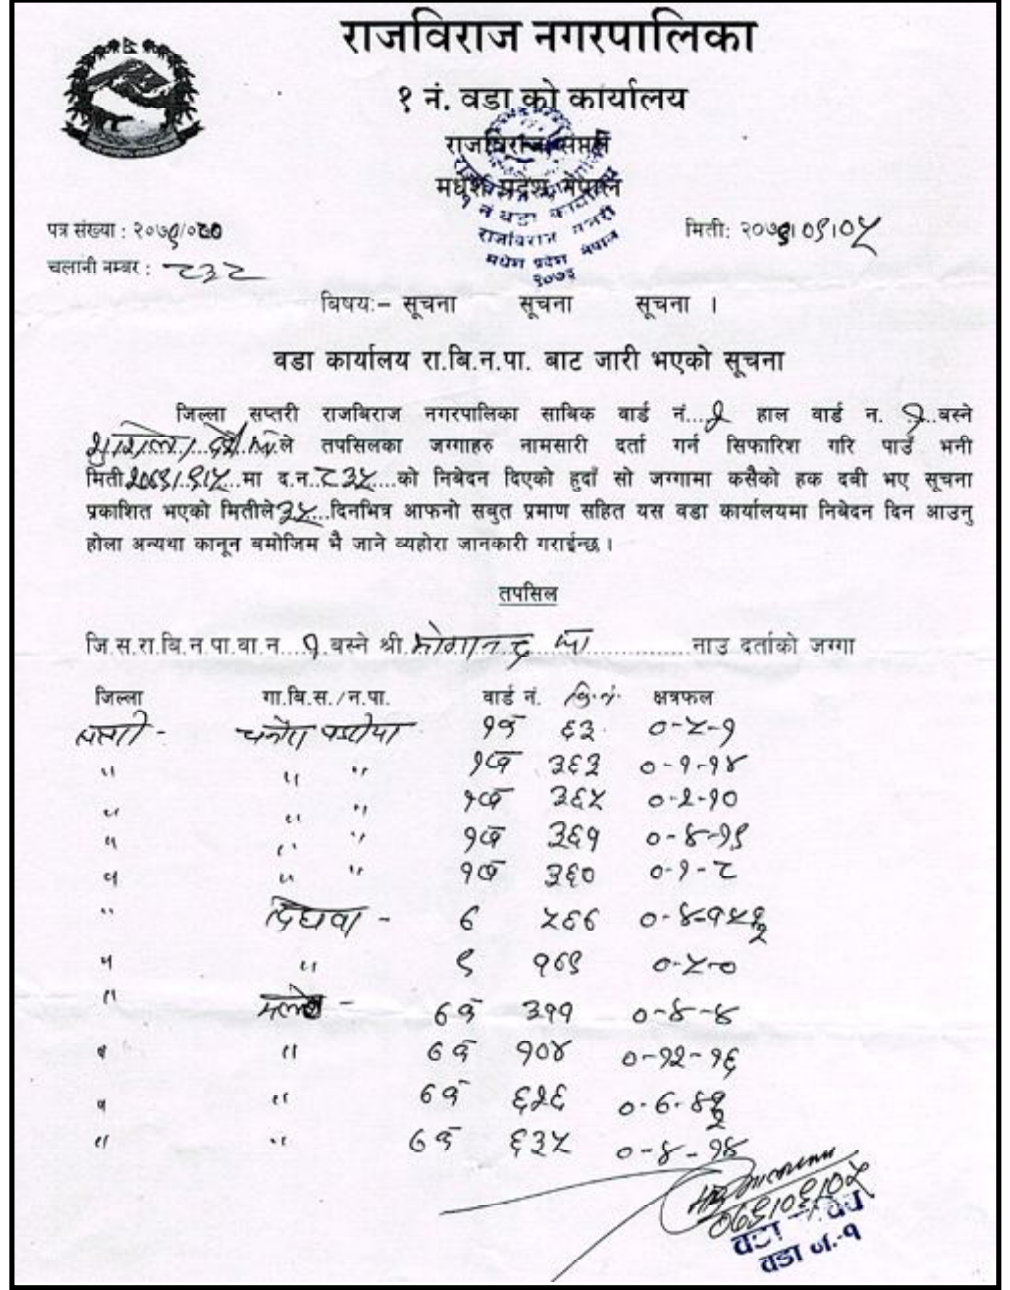 राजविराज नगरपालिका
१ नं. वडा को कार्यालय
राजविराज, सप्तरी
मधेश प्रदेश, नेपाल
पत्र संख्या : २०७९/०८०
मिती: २०७९।०९।०५
चलानी नम्बर : ८३८
विषय:– सूचना सूचना सूचना ।
वडा कार्यालय रा.बि.न.पा. बाट जारी भएको सूचना
जिल्ला सप्तरी राजबिराज नगरपालिका साबिक वार्ड नं... हाल वार्ड न. १..बस्ने
ले तपसिलका जग्गाहरु नामसारी दर्ता गर्न सिफारिश गरि पाउँ भनी
मिती २०७९।९।५...मा द.न.८३५...को निबेदन दिएको हुदाँ सो जग्गामा कसैको हक दबी भए सूचना
प्रकाशित भएको मितीले ३५...दिनभित्र आफनो सबुत प्रमाण सहित यस वडा कार्यालयमा निबेदन दिन आउनु
होला अन्यथा कानून बमोजिम भै जाने व्यहोरा जानकारी गराईन्छ ।
तपसिल
जि.स.रा.बि.न.पा.वा.न...१.बस्ने श्री झा............नाउ दर्ताको जग्गा
जिल्ला गा.बि.स./न.पा. वार्ड नं. कि.नं. क्षत्रफल
सप्तरी - ६३ ०-५-१
" " " ३६३ ०-१-१४
" " " ३६५ ०-२-१०
" " " ३६१ ०-४-१९
" " " ३६० ०-१-८
" दिघवा - ७ ५७७
" " ९ १७९ ०-५-०
" - ३११ ०-४-४
" " १०४ ०-१२-१६
" " ६२६
" " ६३५ ०-४-१४
०७९।०९।०५
वडा सचिव
वडा नं.-१